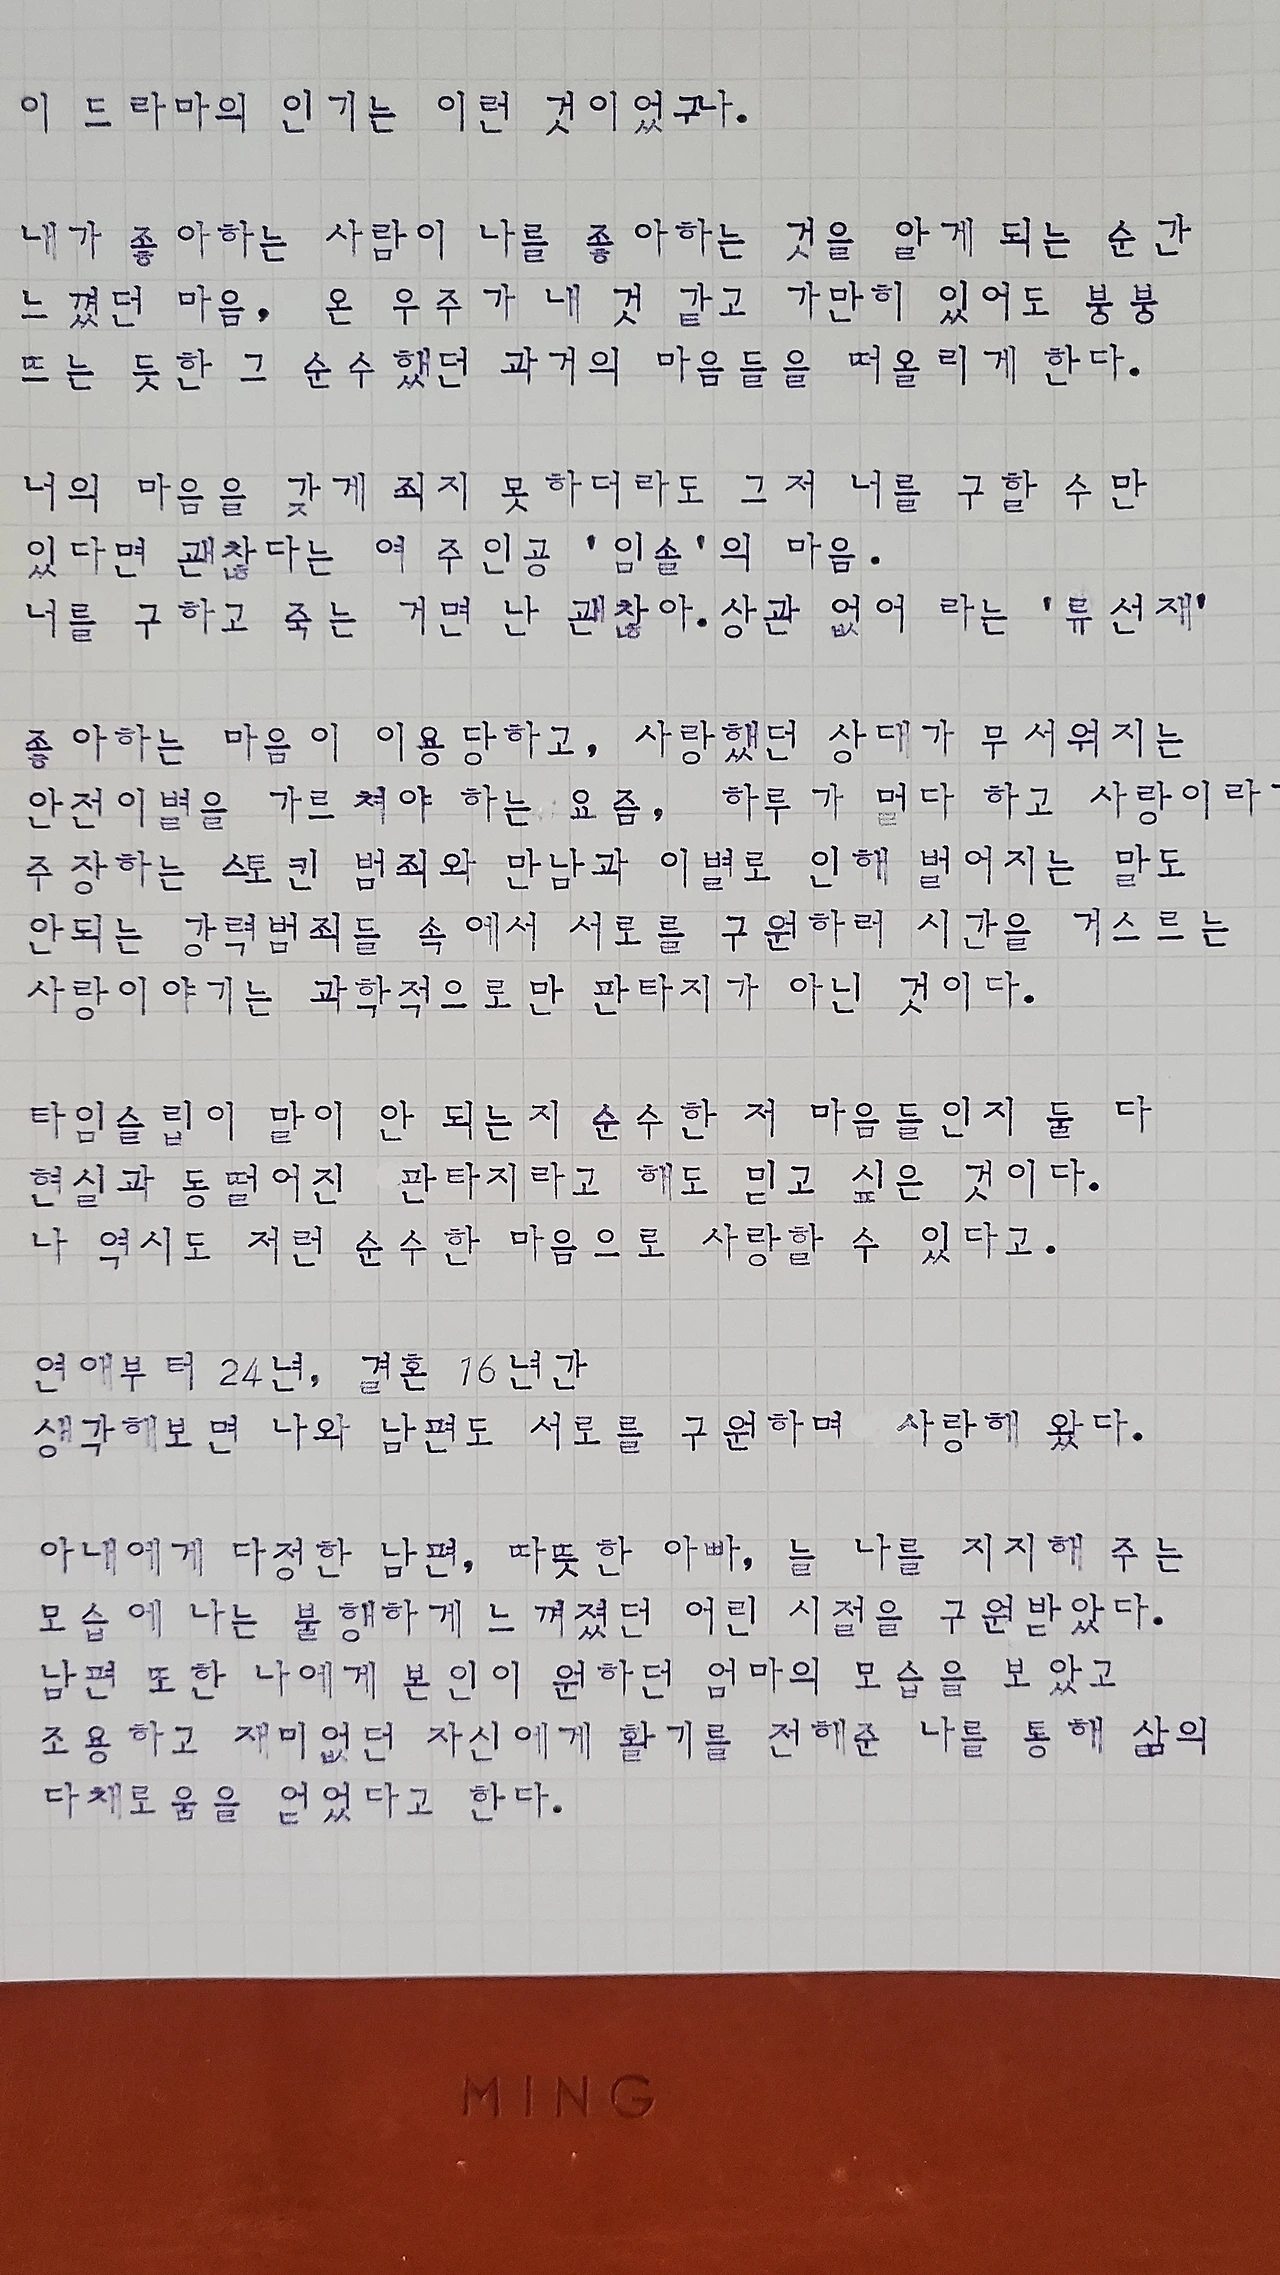 이 드라마의 인기는 이런 것이었구나.
내가 좋아하는 사람이 나를 좋아하는 것을 알게 되는 순간
느꼈던 마음, 온 우주가 내 것 같고 가만히 있어도 붕붕
뜨는 듯한 그 순수했던 과거의 마음들을 떠올리게 한다.
너의 마음을 갖게 죄지 못하더라도 그저 너를 구할 수만
있다면 괜찮다는 여 주인공 '임솔'의 마음.
너를 구하고 죽는 거면 난 괜찮아. 상관 없어 라는 '류선재'
좋아하는 마음이 이용당하고, 사랑했던 상대가 무서워지는
안전이별을 가르쳐야 하는 요즘, 하루가 멀다 하고 사랑이라
주장하는 스토킨 범죄와 만남과 이별로 인해 벌어지는 말도
안되는 강력범죄들 속에서 서로를 구원하러 시간을 거스르는
사랑이야기는 과학적으로만 판타지가 아닌 것이다.
타임슬립이 말이 안 되는지 순수한 저 마음들인지 둘 다
현실과 동떨어진 판타지라고 해도 믿고 싶은 것이다.
나 역시도 저런 순수한 마음으로 사랑할 수 있다고.
연애부터 24년, 결혼 16년간
생각해보면 나와 남편도 서로를 구원하며 사랑해 왔다.
아내에게 다정한 남편, 따뜻한 아빠, 늘 나를 지지해 주는
모습에 나는 불행하게 느껴졌던 어린 시절을 구원받았다.
남편 또한 나에게 본인이 원하던 엄마의 모습을 보았고
조용하고 재미없던 자신에게 활기를 전해준 나를 통해 삶의
다채로움을 얻었다고 한다.
MING